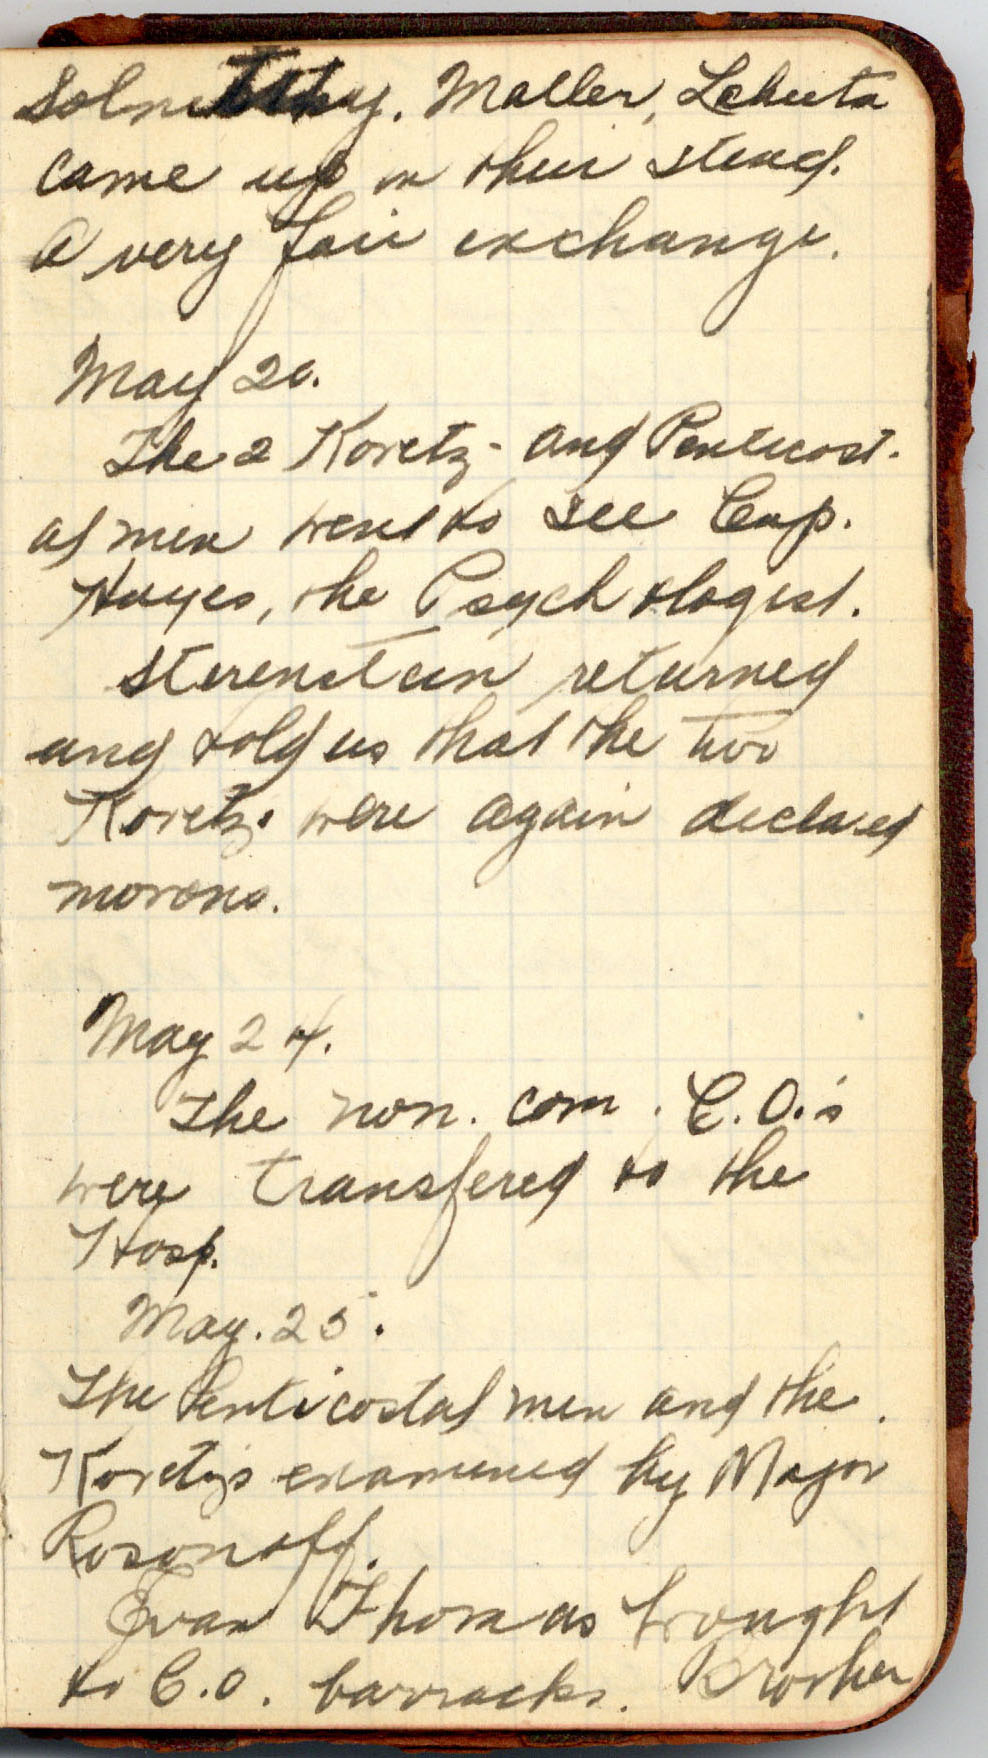 Solnitzky. Maller, Lehuta
came up in their stead.
A very fair exchange.
May 20.
The 2 Koretz- and Penticost-
al men went to see Cap.
Hayes, the Psychologist.
Sterenstein returned
and told us that the two
Koretz. were again declared
morons.
May 24.
The non. com. C.O.'s
were transfered to the
Hosp.
May. 25.
The Penticostal men and the
Koretzs examined by Major
Rosonoff.
Evan Thomas brought
to C.O. barracks. Brother